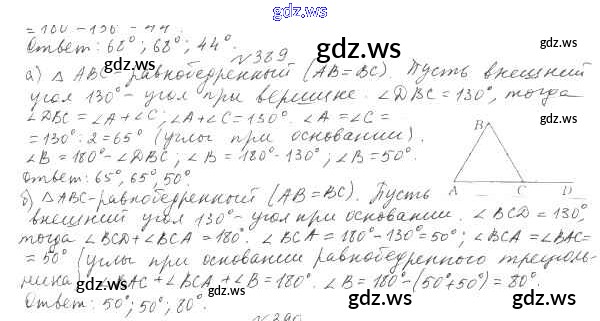 gdz.ws
= 180 - 136 = 44°
Ответ: 68°; 68°; 44°.
№389
а) △ABC - равнобедренный (AB = BC). Пусть внешний
угол 130° - угол при вершине. ∠DBC = 130°, тогда
∠DBC = ∠A + ∠C; ∠A + ∠C = 130°. ∠A = ∠C =
= 130° : 2 = 65° (углы при основании).
∠B = 180° - ∠DBC; ∠B = 180° - 130°; ∠B = 50°.
Ответ: 65°, 65°, 50°.
B
A C D
б) △ABC - равнобедренный (AB = BC). Пусть
внешний угол 130° - угол при основании. ∠BCD = 130°
тогда ∠BCD + ∠BCA = 180°. ∠BCA = 180° - 130° = 50°; ∠BCA = ∠BAC =
= 50° (углы при основании равнобедренного треуголь-
ника). ∠BAC + ∠BCA + ∠B = 180°. ∠B = 180° - (50° + 50°) = 80°.
Ответ: 50°; 50°; 80°.
№390
gdz.ws
gdz.ws
gdz.ws
gdz.ws
gdz.ws
gdz.ws
gdz.ws
gdz.ws